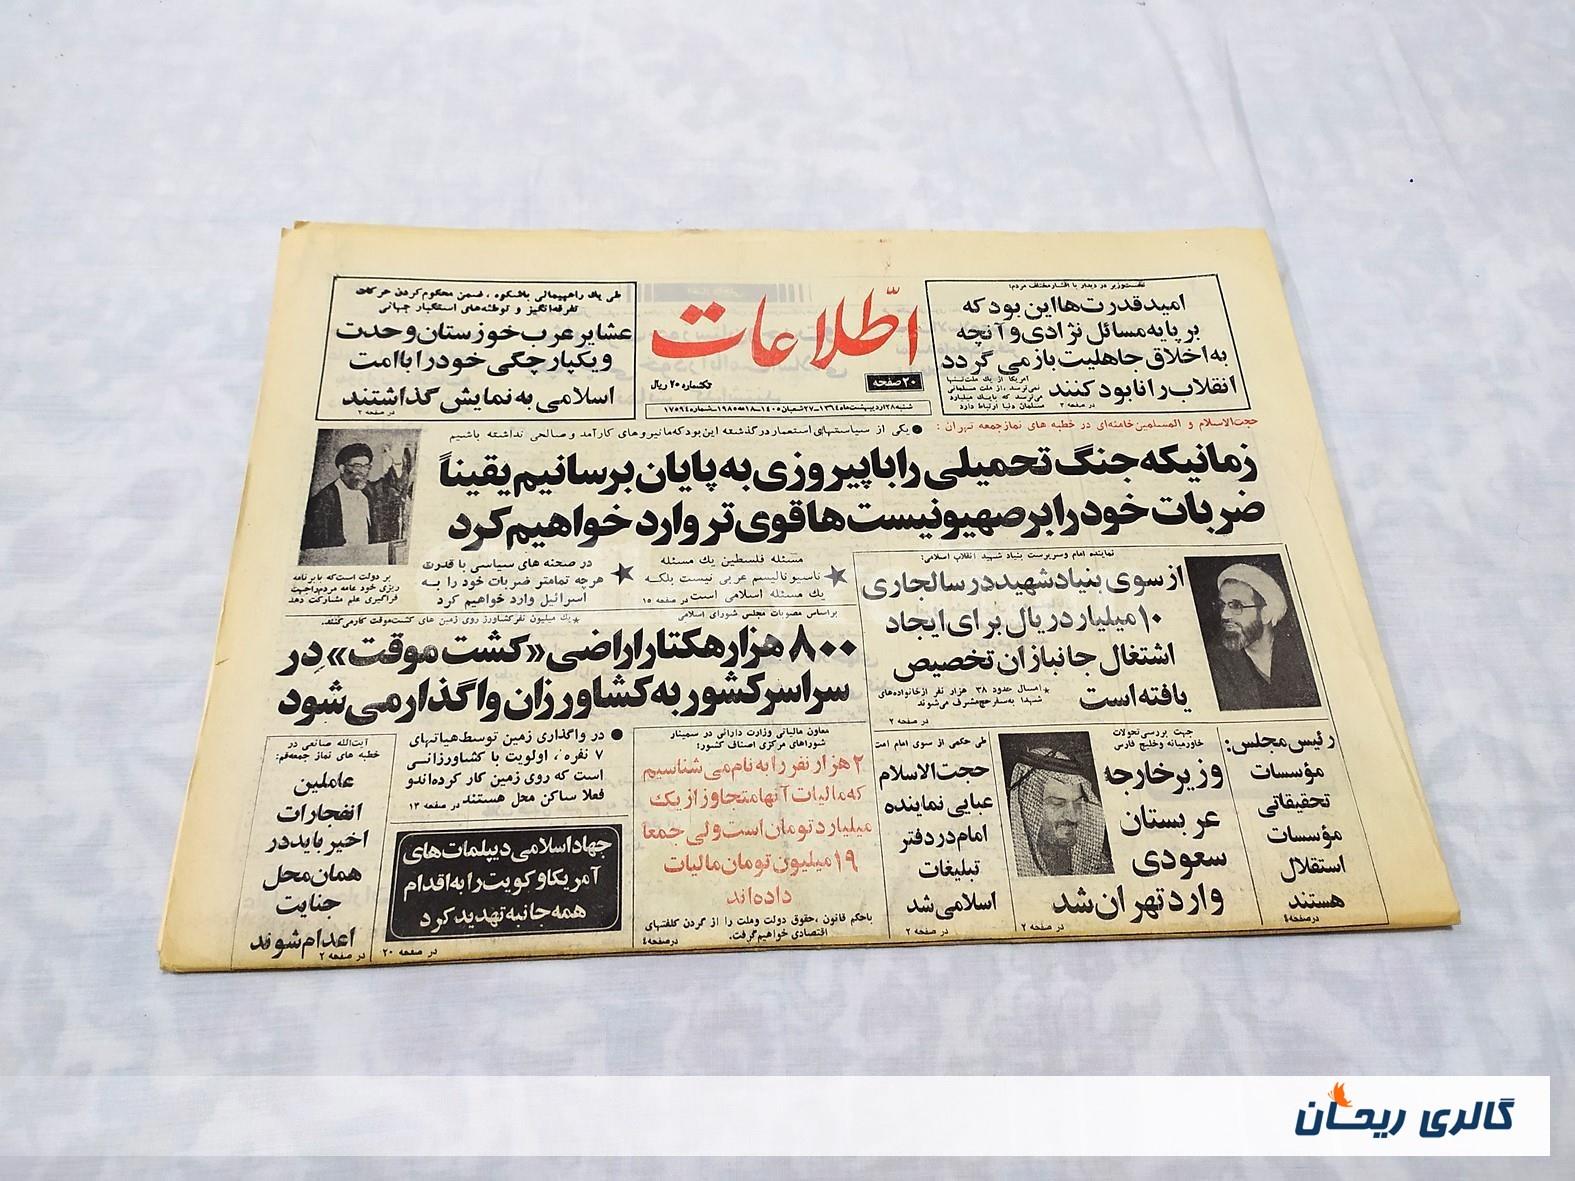 نخست‌وزیر در دیدار با اقشار مختلف مردم:
امید قدرت‌ها این بود که
بر پایه مسائل نژادی و آنچه
به اخلاق جاهلیت باز می گردد
انقلاب را نابود کنند
آمریکا از یک ملت تنها
نمی‌ترسد، از ملت مسلمانی
می‌ترسد که با یک میلیارد
مسلمان دنیا ارتباط دارد
در صفحه ۳
اطلاعات
۲۰ صفحه
تکشماره ۲۰ ریال
شنبه ۲۸ اردیبهشت‌ماه ۱۳۶۴ـ ۲۷ شعبان ۱۴۰۵ـ ۱۸ مه ۱۹۸۵ـ شماره ۱۷۵۹۴
طی یک راهپیمائی باشکوه، ضمن محکوم کردن حرکات
تفرقه‌انگیز و توطئه‌های استکبار جهانی
عشایر عرب خوزستان وحدت
و یکپارچگی خود را با امت
اسلامی به نمایش گذاشتند
در صفحه ۲
حجت‌الاسلام و المسلمین خامنه‌ای در خطبه های نماز جمعه تهران :
● یکی از سیاستهای استعمار در گذشته این بود که ما نیروهای کارآمد و صالحی نداشته باشیم
زمانیکه جنگ تحمیلی را با پیروزی به پایان برسانیم یقیناً
ضربات خود را بر صهیونیست‌ها قوی تر وارد خواهیم کرد
★ مسئله فلسطین یك مسئله
ناسیونالیسم عربی نیست بلکه
یك مسئله اسلامی است در صفحه ۱۵
★ در صحنه های سیاسی با قدرت
هرچه تمامتر ضربات خود را به
اسرائیل وارد خواهیم کرد
بر دولت است که با برنامه
ریزی خود عامه مردم را جهت
فراگیری علم مشارکت دهد
نماینده امام و سرپرست بنیاد شهید انقلاب اسلامی:
از سوی بنیاد شهید در سال جاری
۱۰ میلیارد ریال برای ایجاد
اشتغال جانبازان تخصیص
یافته است
★ امسال حدود ۳۸ هزار نفر از خانواده‌های
شهدا به سفر حج مشرف می‌شوند
در صفحه ۲
براساس مصوبات مجلس شورای اسلامی
★ یك میلیون نفر کشاورز روی زمین های کشت موقت کار می‌کنند.
۸۰۰ هزار هکتار اراضی «کشت موقت» در
سراسر کشور به کشاورزان واگذار می شود
● در واگذاری زمین توسط هیاتهای
۷ نفره، اولویت با کشاورزانی
است که روی زمین کار کرده‌اند و
فعلا ساکن محل هستند در صفحه ۱۳
رئیس مجلس:
مؤسسات
تحقیقاتی
مؤسسات
استقلال
هستند
در صفحه ۴
جهت بررسی تحولات
خاورمیانه و خلیج فارس
وزیر خارجه
عربستان
سعودی
وارد تهران شد
در صفحه ۲
طی حکمی از سوی امام امت
حجت‌الاسلام
عبایی نماینده
امام در دفتر
تبلیغات
اسلامی شد
در صفحه ۲
معاون مالیاتی وزارت دارائی در سمینار
شوراهای مرکزی اصناف کشور:
۲ هزار نفر را به نام می شناسیم
که مالیات آنها متجاوز از یک
میلیارد تومان است ولی جمعاً
۱۹ میلیون تومان مالیات
داده‌اند
با حکم قانون، حقوق دولت و ملت را از گردن کلفتهای
اقتصادی خواهیم گرفت.
در صفحه ۴
جهاد اسلامی دیپلمات های
آمریکا و کویت را به اقدام
همه جانبه تهدید کرد
در صفحه ۲۰
آیت‌الله صانعی در
خطبه های نماز جمعه قم:
عاملین
انفجارات
اخیر باید در
همان محل
جنایت
اعدام شوند
در صفحه ۲
گالری ریحان